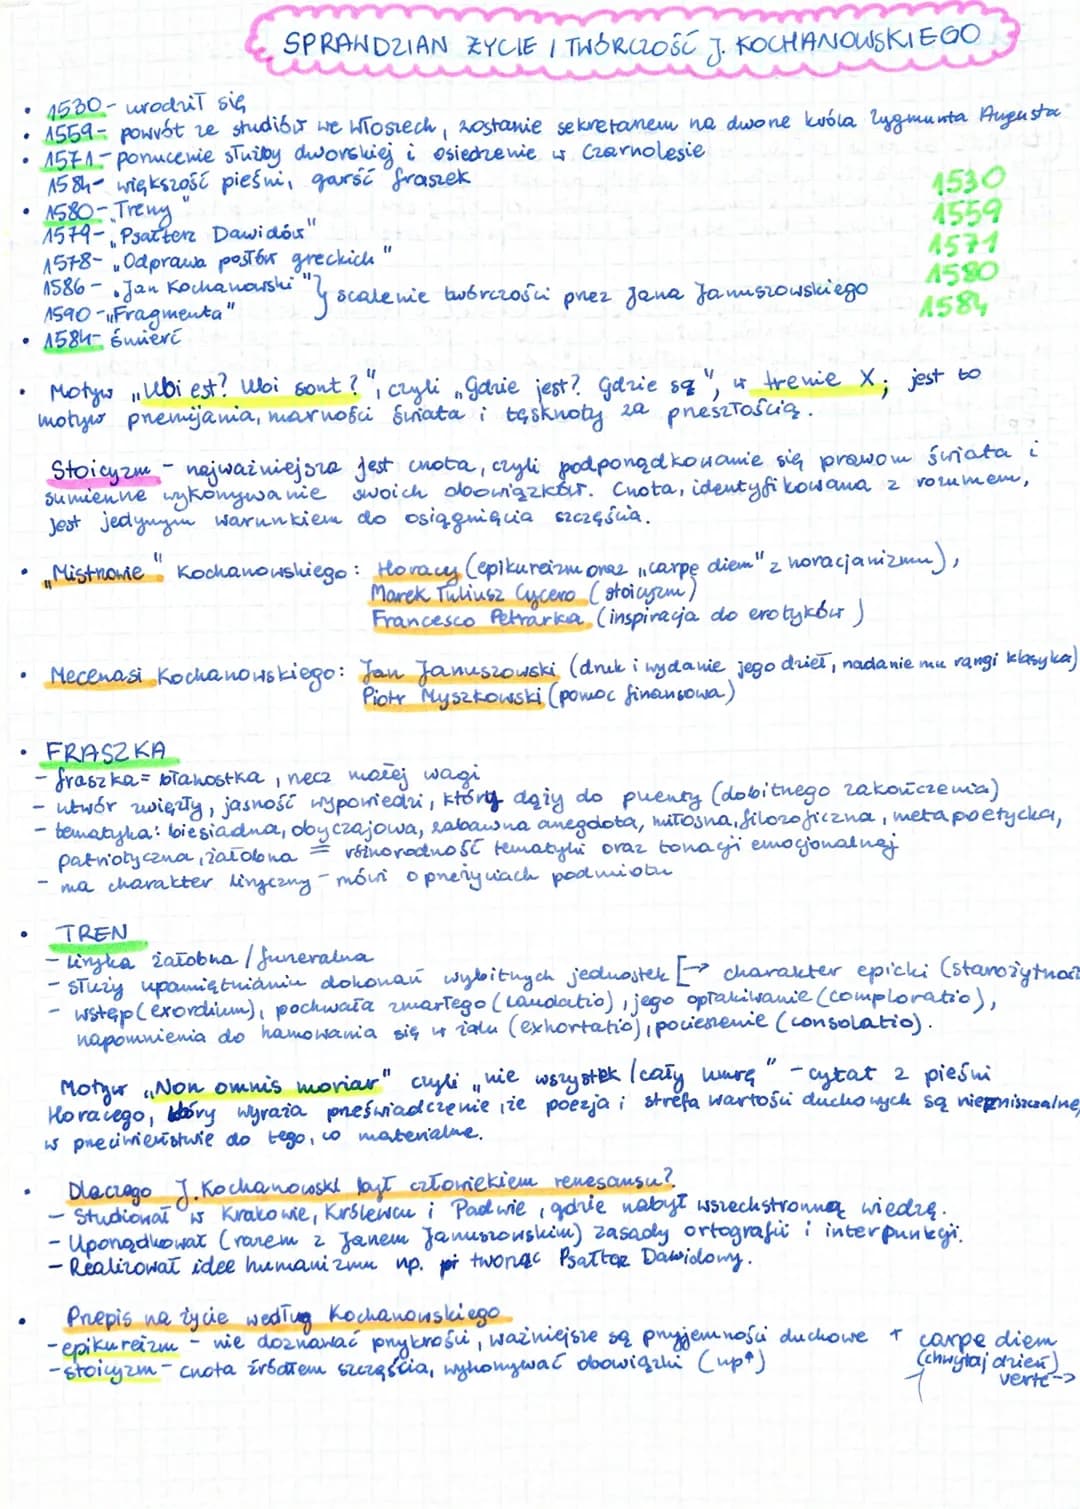 SPRAWDZIAN ŻYCIE I TWÓRCZOŚĆ J. KOCHANOWSKIEGO
• 1530 - urodził się
• 1559 - powrót ze studiów we Włoszech, zostanie sekretarzem na dworze króla Zygmunta Augusta
• 1571 - porzucenie służby dworskiej i osiedzenie w Czarnolesie
1584 - większość pieśni, garść fraszek
• 1580 - "Treny"
1579 - "Psałterz Dawidów"
1578 - "Odprawa posłów greckich"
1586 - "Jan Kochanowski" } scalenie twórczości przez Jana Januszowskiego
1590 - "Fragmenta"
• 1584 - śmierć
1530
1559
1571
1580
1584
• Motyw „Ubi est? Ubi sont?", czyli „Gdzie jest? Gdzie są", w trenie X; jest to
motyw przemijania, marności świata i tęsknoty za przeszłością.
Stoicyzm - najważniejsza jest cnota, czyli podporządkowanie się prawom świata i
sumienne wykonywanie swoich obowiązków. Cnota, identyfikowana z rozumem,
jest jedynym warunkiem do osiągnięcia szczęścia.
• „Mistrzowie" Kochanowskiego: Horacy (epikureizm oraz „carpe diem" z horacjanizmu),
Marek Tuliusz Cycero (stoicyzm)
Francesco Petrarka (inspiracja do erotyków)
• Mecenasi Kochanowskiego: Jan Januszowski (druk i wydanie jego dzieł, nadanie mu rangi klasyka)
Piotr Myszkowski (pomoc finansowa)
• FRASZKA
- fraszka = błahostka, rzecz małej wagi
- utwór zwięzły, jasność wypowiedzi, który dąży do puenty (dobitnego zakończenia)
- tematyka: biesiadna, obyczajowa, zabawna anegdota, miłosna, filozoficzna, metapoetycka,
patriotyczna, żałobna = różnorodność tematyki oraz tonacji emocjonalnej
- ma charakter liryczny - mówi o przeżyciach podmiotu
• TREN
- liryka żałobna / funeralna
- służy upamiętnianiu dokonań wybitnych jednostek [→ charakter epicki (starożytność
- wstęp (exordium), pochwała zmarłego (laudatio), jego opłakiwanie (comploratio),
napomnienia do hamowania się w żalu (exhortatio), pocieszenie (consolatio).
Motyw „Non omnis moriar" czyli „nie wszystek / cały umrę" - cytat z pieśni
Horacego, który wyraża przeświadczenie, że poezja i strefa wartości duchowych są niezniszczalne,
w przeciwieństwie do tego, co materialne.
• Dlaczego J. Kochanowski był człowiekiem renesansu?
- Studiował w Krakowie, Królewcu i Padwie, gdzie nabył wszechstronną wiedzę.
- Uporządkował (razem z Janem Januszowskim) zasady ortografii i interpunkcji.
- Realizował idee humanizmu np. tworząc Psałterz Dawidowy.
• Przepis na życie według Kochanowskiego
- epikureizm - nie doznawać przykrości, ważniejsze są przyjemności duchowe + carpe diem
(chwytaj dzień)
- stoicyzm - cnota źródłem szczęścia, wykonywać obowiązki (up↑)
verte->